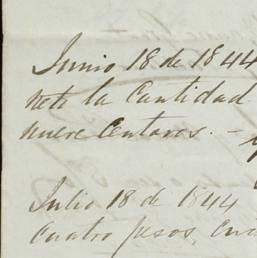 Junio 18 de 1844
neto la Cantidad
nueve Centavos. –
Julio 18 de 1844
Cuatro pesos,